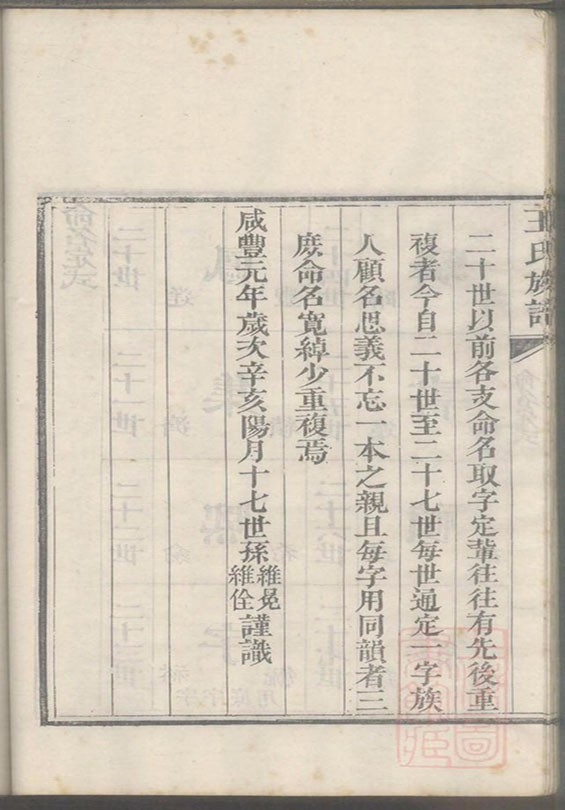 王氏族譜
二十世以前各支命名取字定輩往往有先後重
複者今自二十世至二十七世每世通定一字族
人顧名思義不忘一本之親且每字用同韻者三
庶命名寬綽少重複焉
咸豐元年歲次辛亥陽月十七世孫維晃維佺謹識